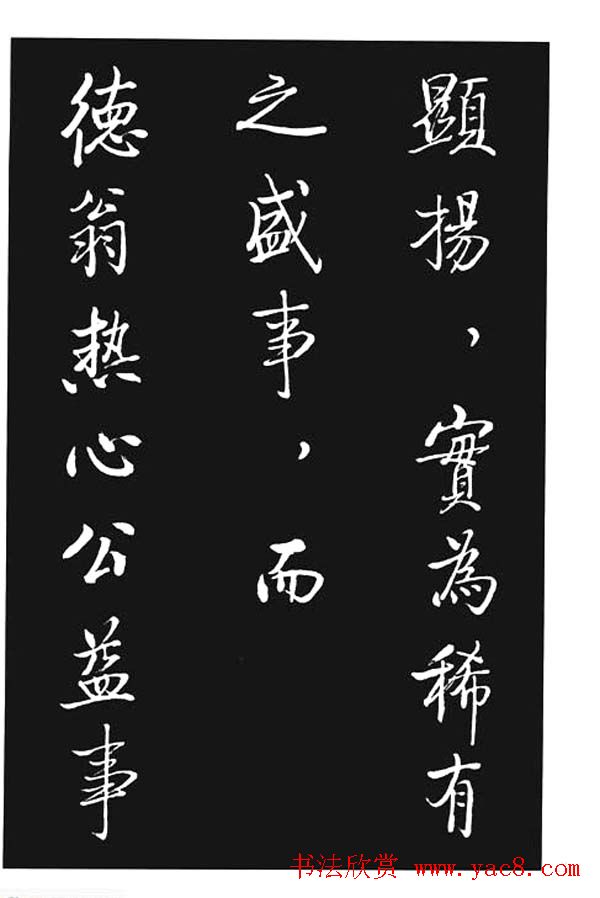 顯揚，實為稀有
之盛事，而
德翁热心公益事
书法欣赏 www.yac8.com